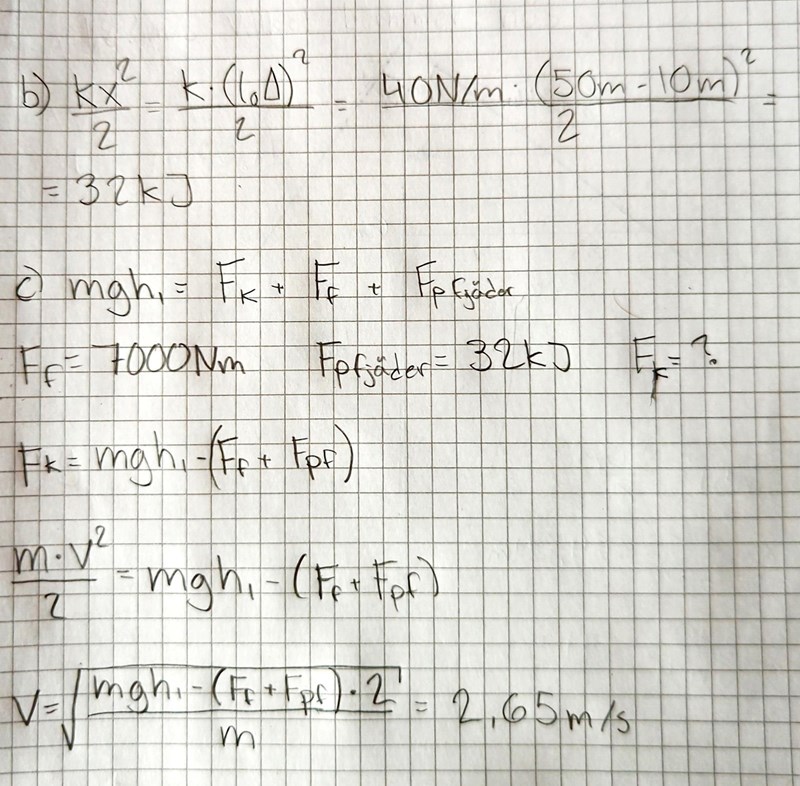 b) kx²/2 = k·(l₀Δ)²/2 = 40N/m·(50m-10m)²/2 =
= 32kJ
c) mgh₁ = Fk + Ff + Fpfjäder
Ff = 7000Nm Fpfjäder = 32kJ Fk = ?
Fk = mgh₁-(Ff + Fpf)
m·v²/2 = mgh₁-(Ff+Fpf)
V=√(mgh₁-(Ff+Fpf)·2/m) = 2,65m/s